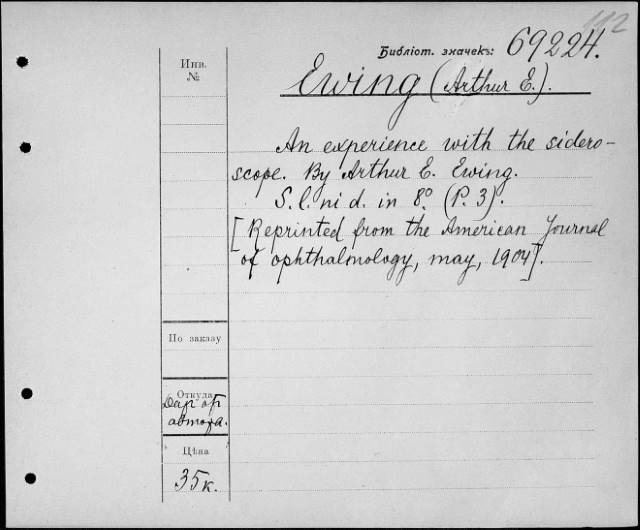 112
Библіот. значекъ: 69224.
Инв.
№
Ewing (Arthur E.).
An experience with the sidero-
scope. By Arthur E. Ewing.
S. l. ni d. in 8º. (P. 3).
[Reprinted from the American Journal
of ophthalmology, may, 1904].
По заказу
Откуда
Дар от
автора.
Цѣна
35к.